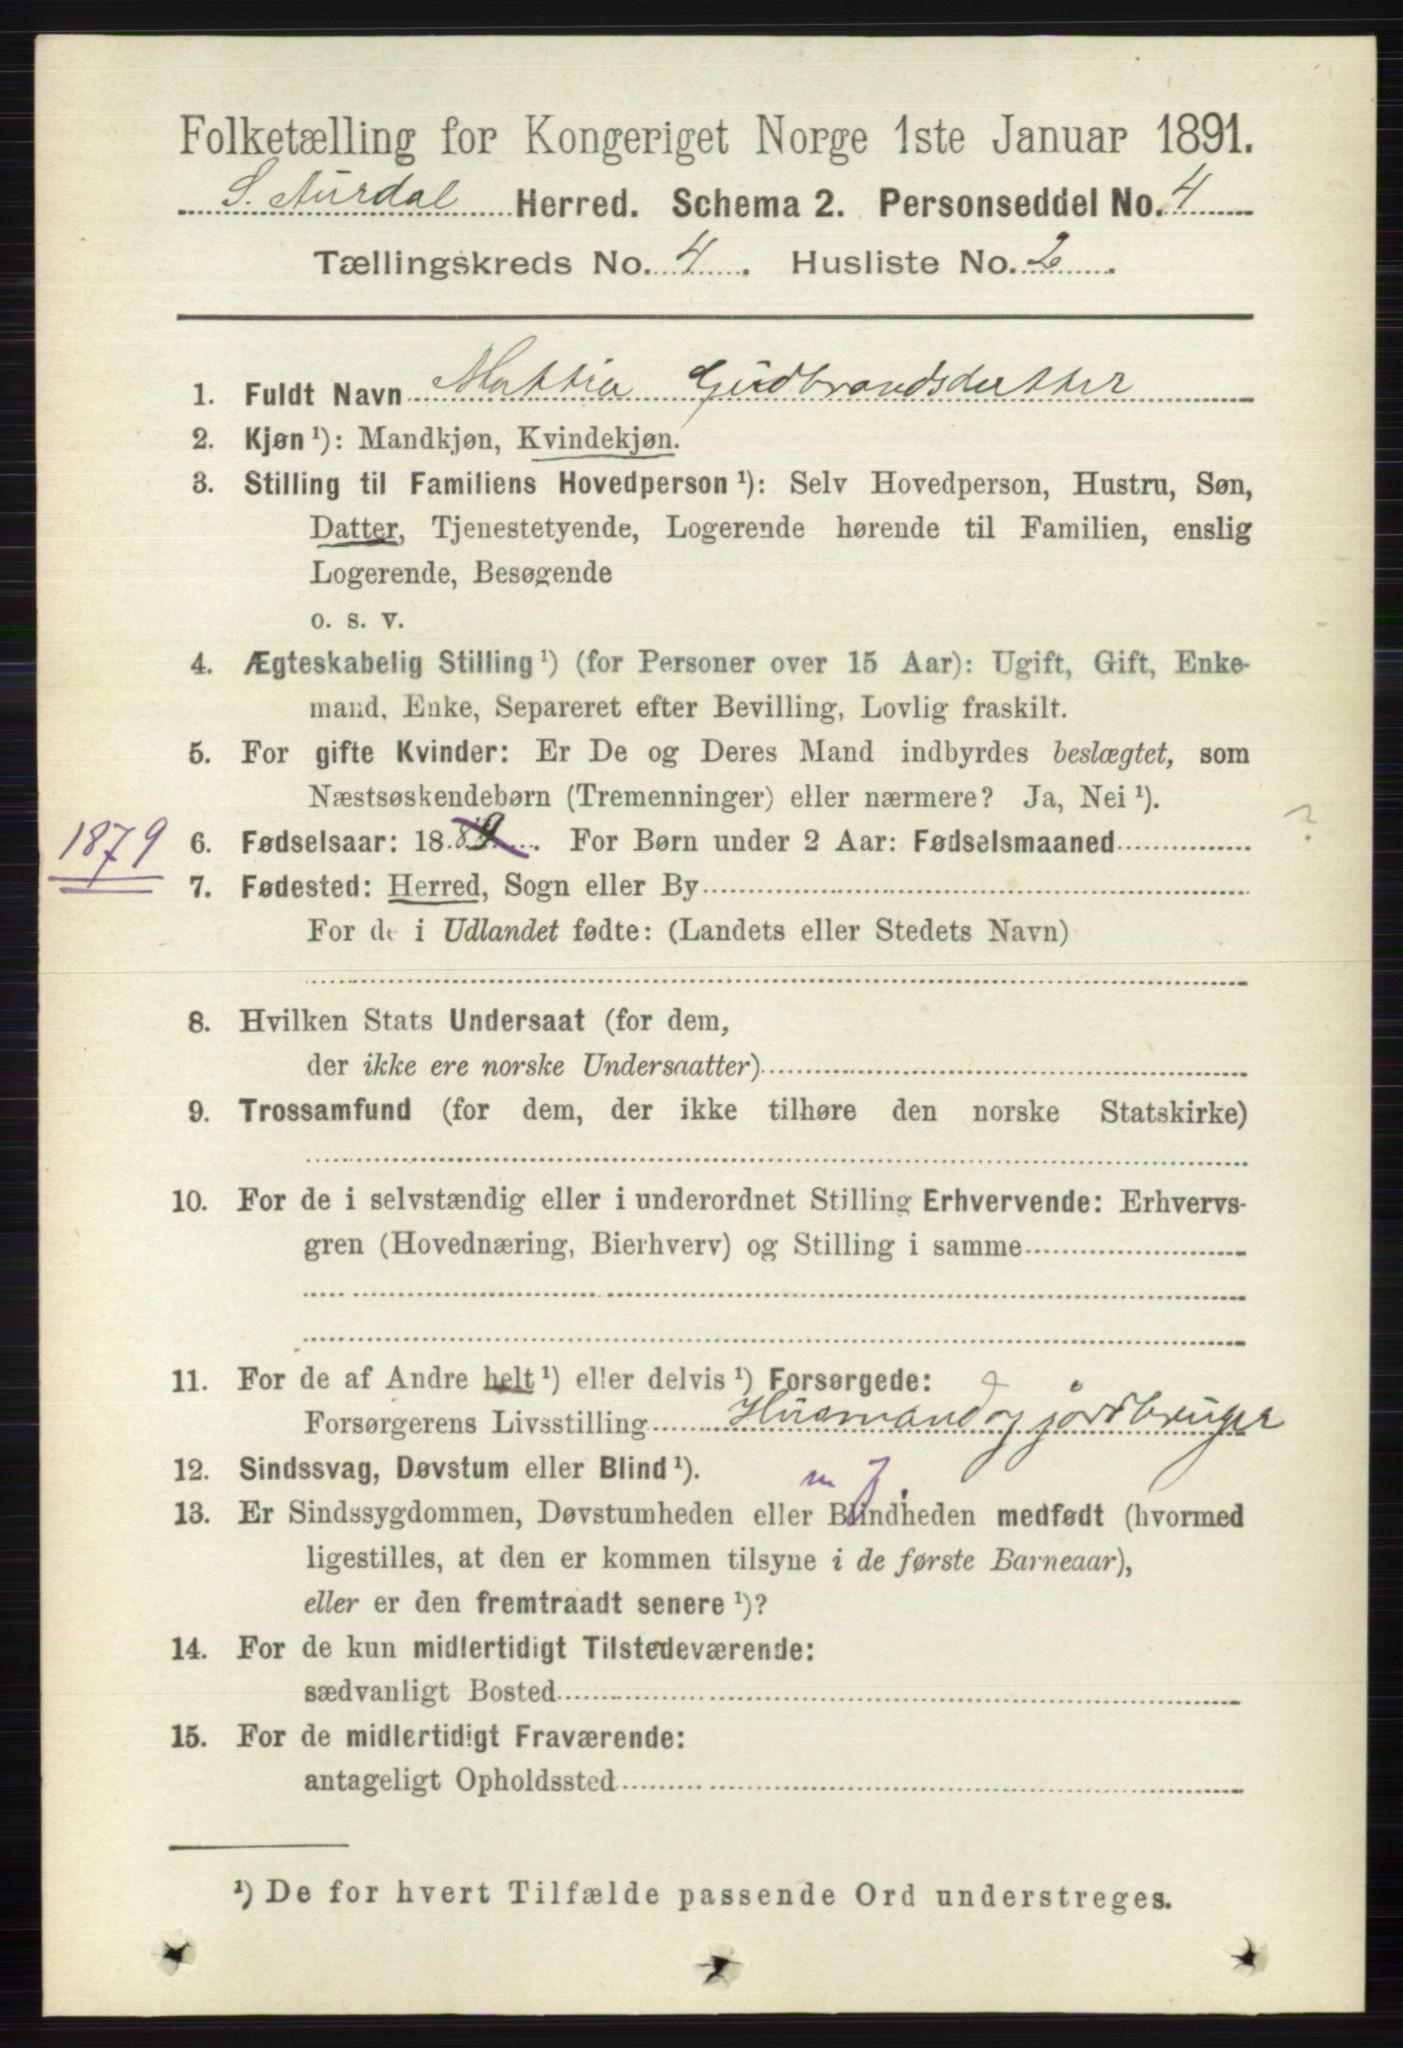 Folketælling for Kongeriget Norge 1ste Januar 1891.
S. Aurdal Herred. Schema 2. Personseddel No. 4
Tællingskreds No. 4. Husliste No. 2
1. Fuldt Navn Mathia Gudbrandsdatter
2. Kjøn ¹): Mandkjøn, Kvindekjøn.
3. Stilling til Familiens Hovedperson ¹): Selv Hovedperson, Hustru, Søn,
Datter, Tjenestetyende, Logerende hørende til Familien, enslig
Logerende, Besøgende
o. s. v.
4. Ægteskabelig Stilling ¹) (for Personer over 15 Aar): Ugift, Gift, Enke-
mand, Enke, Separeret efter Bevilling, Lovlig fraskilt.
5. For gifte Kvinder: Er De og Deres Mand indbyrdes beslægtet, som
Næstsøskendebørn (Tremenninger) eller nærmere? Ja, Nei ¹).
1879 6. Fødselsaar: 1889. For Børn under 2 Aar: Fødselsmaaned ?
7. Fødested: Herred, Sogn eller By
For de i Udlandet fødte: (Landets eller Stedets Navn)
8. Hvilken Stats Undersaat (for dem,
der ikke ere norske Undersaatter)
9. Trossamfund (for dem, der ikke tilhøre den norske Statskirke)
10. For de i selvstændig eller i underordnet Stilling Erhvervende: Erhvervs-
gren (Hovednæring, Bierhverv) og Stilling i samme
11. For de af Andre helt ¹) eller delvis ¹) Forsørgede:
Forsørgerens Livsstilling Husmand og jordbruger
12. Sindssvag, Døvstum eller Blind ¹).
13. Er Sindssygdommen, Døvstumheden eller Blindheden medfødt (hvormed
ligestilles, at den er kommen tilsyne i de første Barneaar),
eller er den fremtraadt senere ¹)?
14. For de kun midlertidigt Tilstedeværende:
sædvanligt Bosted
15. For de midlertidigt Fraværende:
antageligt Opholdssted
¹) De for hvert Tilfælde passende Ord understreges.